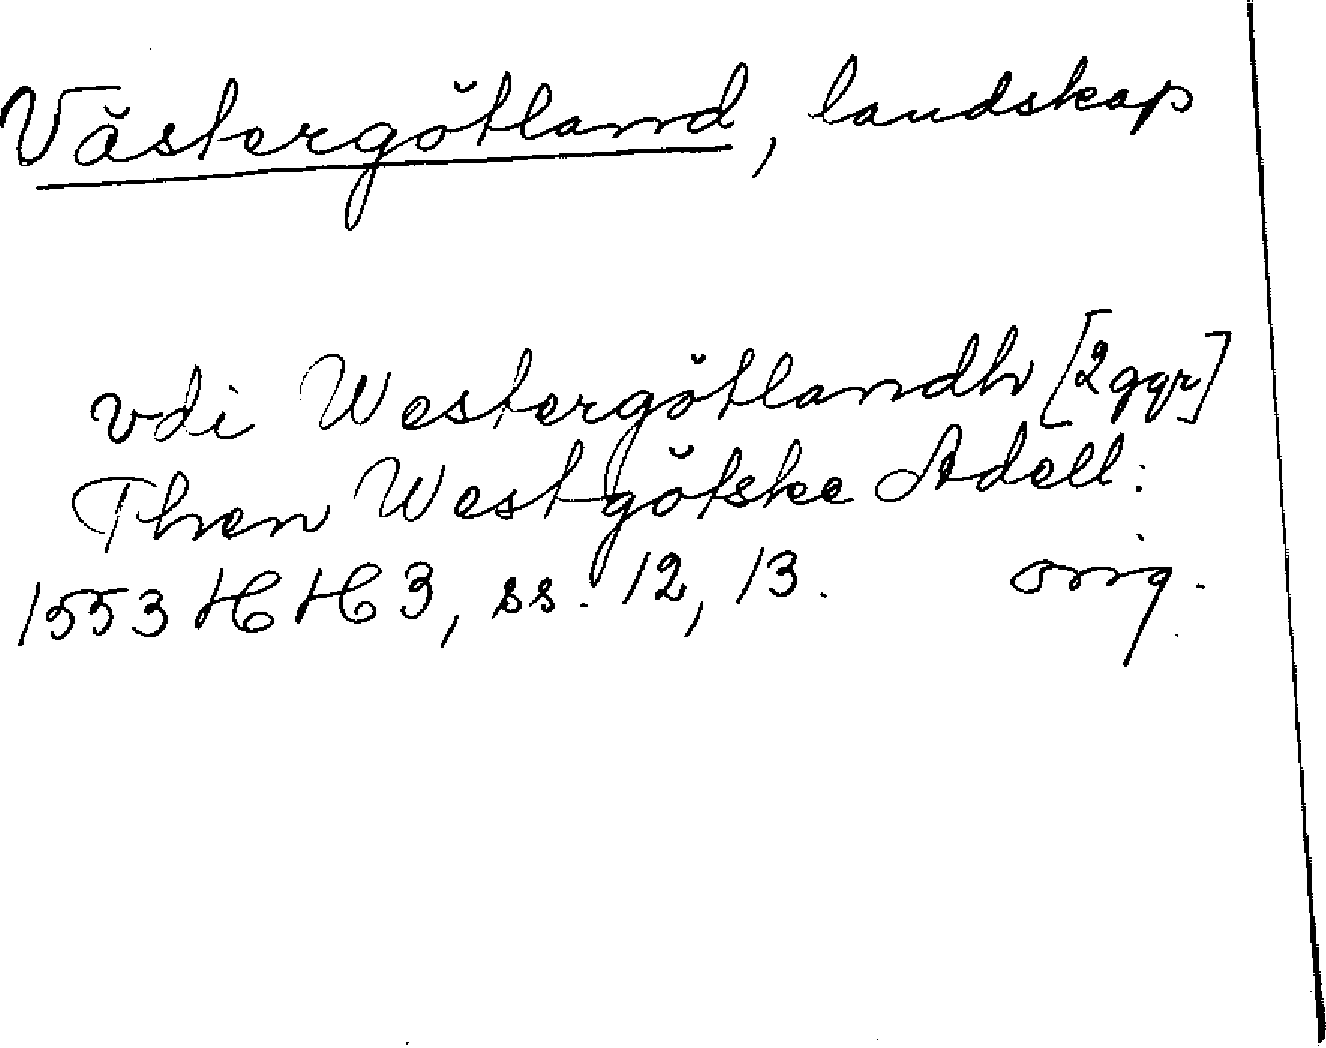 Västergötland, landskap
vdi Westergötlandh [2 ggr]
Then Westgötske Adell:
1553 HH 3, ss. 12, 13. orig.